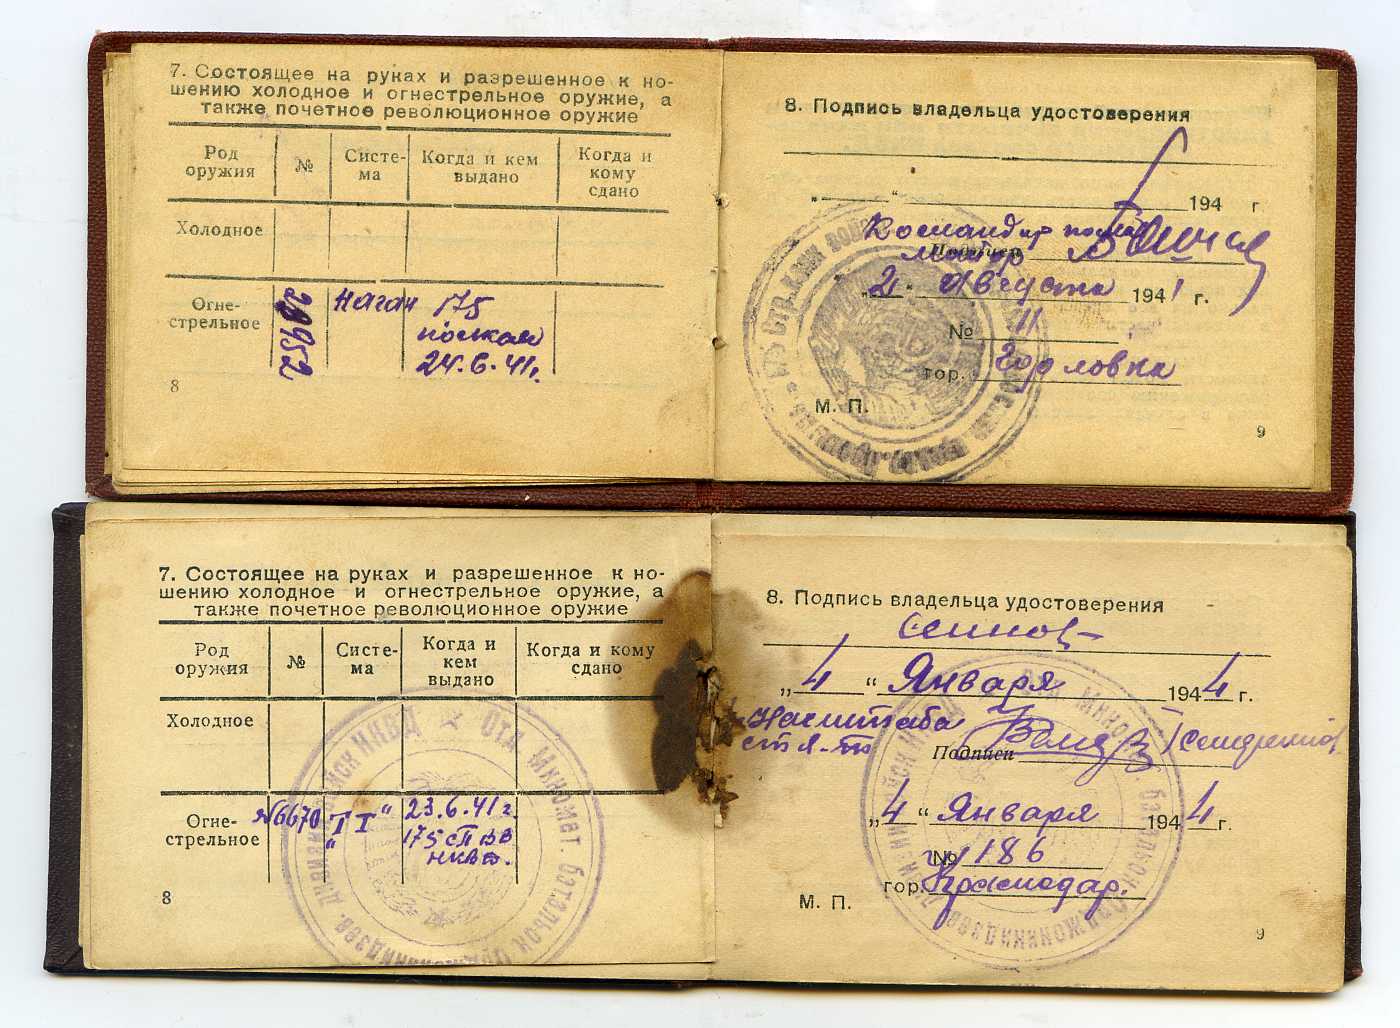 7. Состоящее на руках и разрешенное к но-
шению холодное и огнестрельное оружие, а
также почетное революционное оружие
Род оружия
№
Систе-
ма
Когда и кем
выдано
Когда и
кому
сдано
Холодное
Огне-
стрельное
наган
175
полком
24.6.41г.
8
8. Подпись владельца удостоверения
„ “ 194 г.
Командир полка
майор
Подписи
„2“ Августа 1941 г.
№ 11
гор. Горловка
М. П.
9
7. Состоящее на руках и разрешенное к но-
шению холодное и огнестрельное оружие, а
также почетное революционное оружие
Род
оружия
№
Систе-
ма
Когда и
кем
выдано
Когда и кому
сдано
Холодное
Огне-
стрельное
№6670
„ТТ“
23.6.41г.
175 сп ВВ
НКВД.
Отд. Миномет. батальон Орджоникидзев. дивизии войск НКВД
8
8. Подпись владельца удостоверения
„4“ Января 1944 г.
Нач штаба
ст л-т
Подписи
„4“ Января 1944 г.
№ 186
гор. Краснодар.
М. П.
9